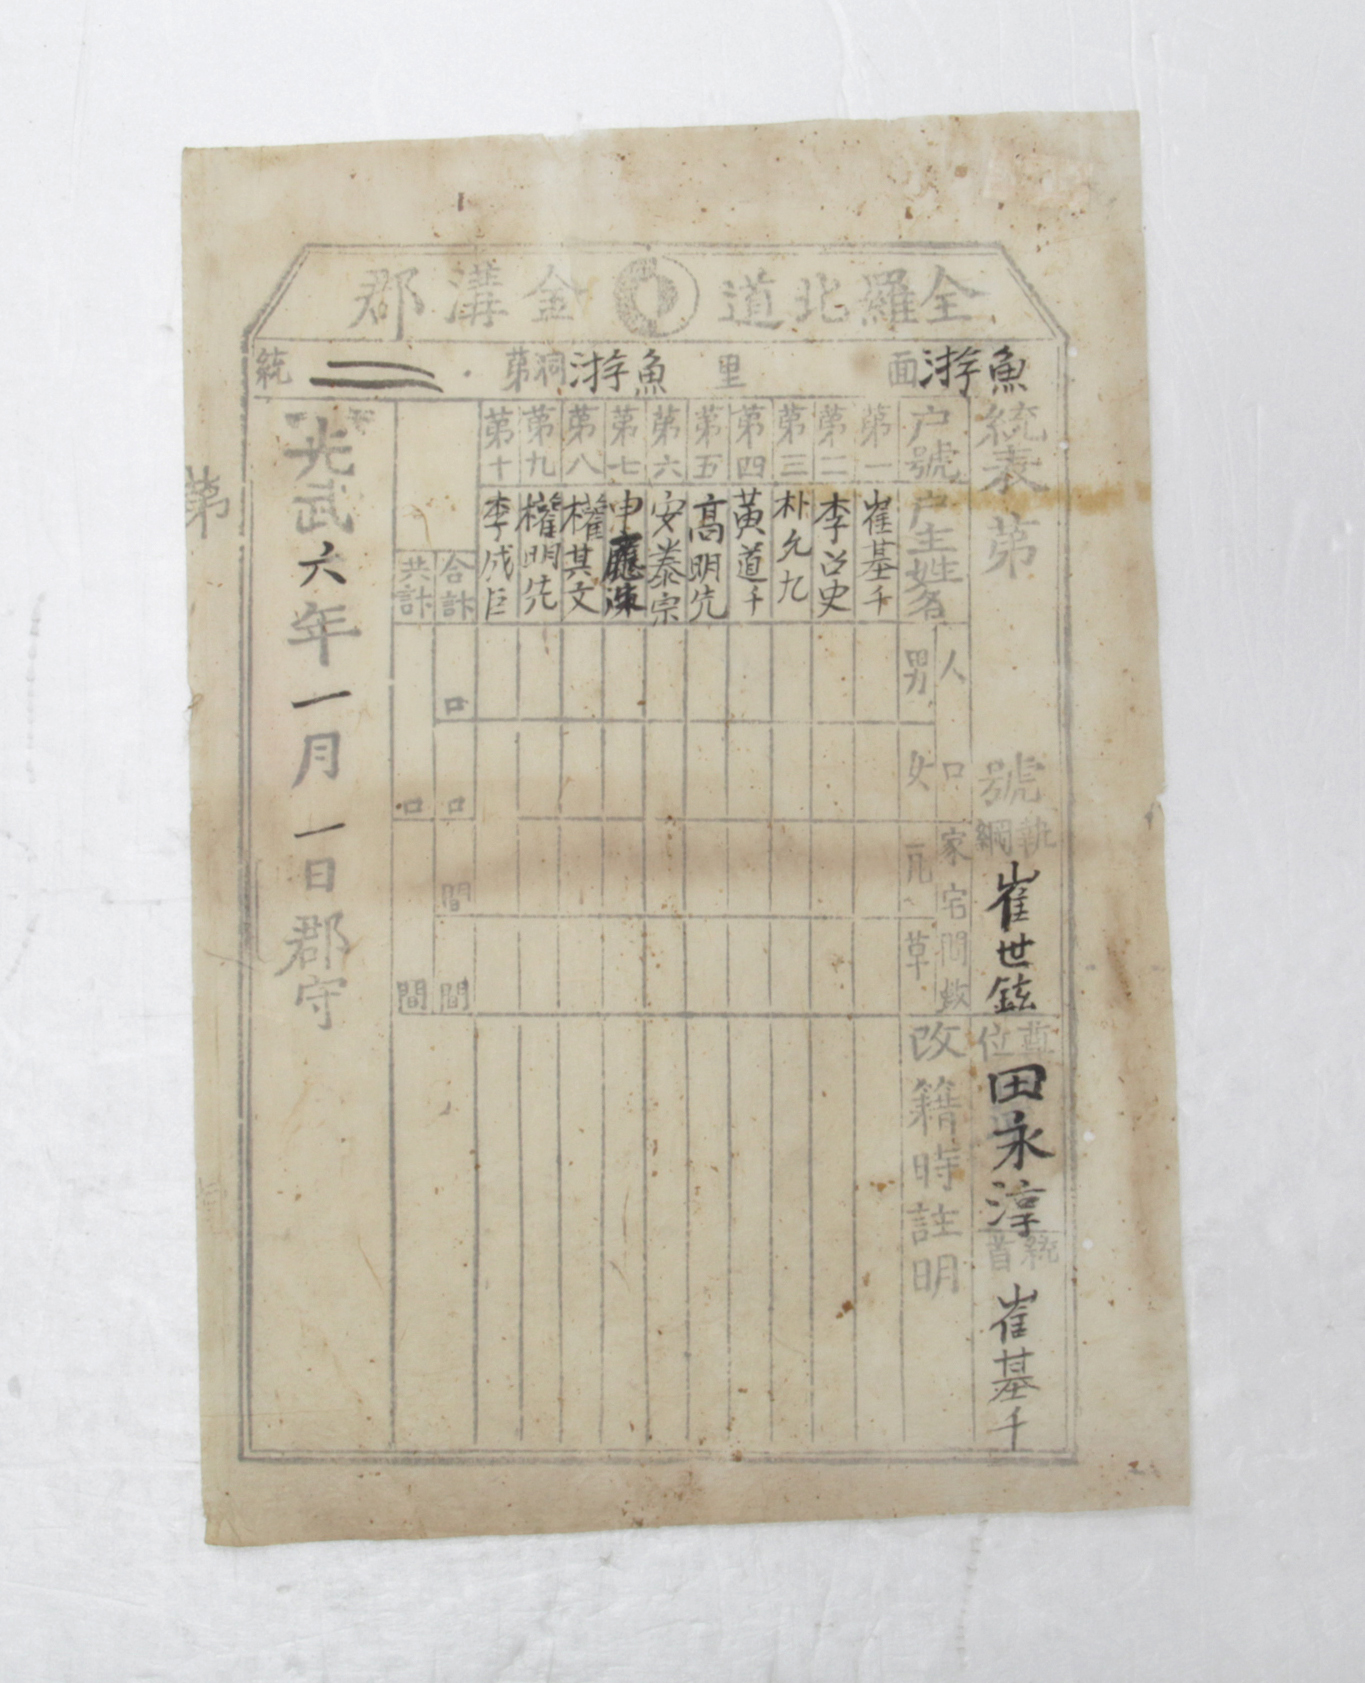 全羅北道 金溝郡
魚㳺面 里 魚㳺洞第二統
統表 第 號 執綱 崔世鉉 尊位 田永淳 統首 崔基千
户號 户主姓名 人口 男 女 家宅間數 瓦 草 改籍時註明
第一 崔基千
第二 李召史
第三 朴允九
第四 黃道千
第五 高明先
第六 安泰宗
第七 申應涑
第八 權其文
第九 權明先
第十 李成臣
合計 口 口 間 間
共計 口 間
光武六年一月一日 郡守
第